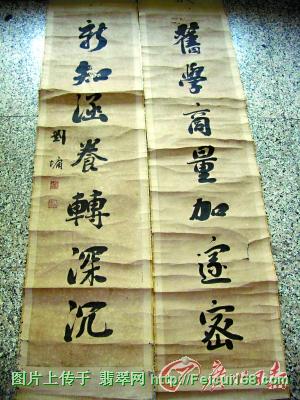 舊學商量加邃密
新知涵養轉深沉
劉墉
广州日报
图片上传于 翡翠网 http://Feicui168.com